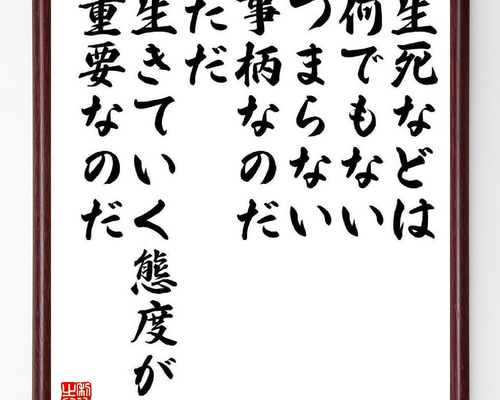 生死などは
何でもない
つまらない
事柄なのだ
ただ
生きていく態度が
重要なのだ